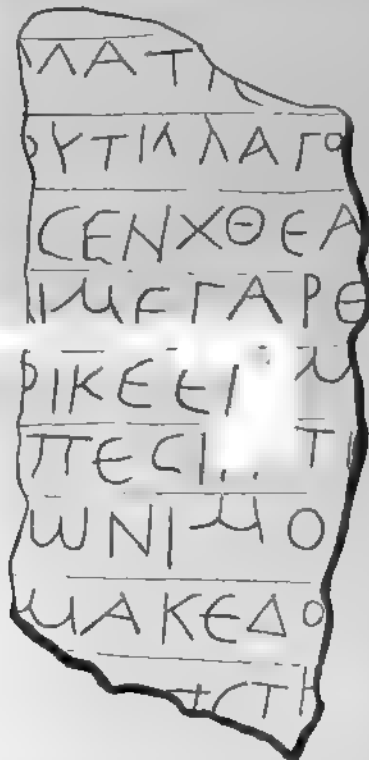 ΛΑΤΙ
ΡΥΤΙΛΛΑΓΟ
ϹΕΝΧΘΕΑ
ΙΜΕΓΑΡΘ
ΡΙΚΕΕΙ Μ
ΠΕϹΙ.. ΤΙ
ωΝΙΜΟ
ΜΑΚΕΔΟ
ϹΤΗ